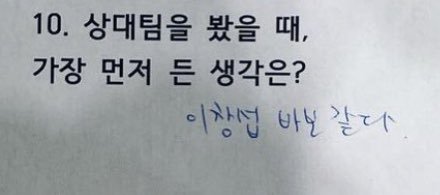 10. 상대팀을 봤을 때,
가장 먼저 든 생각은?
이창섭 바보 같다.